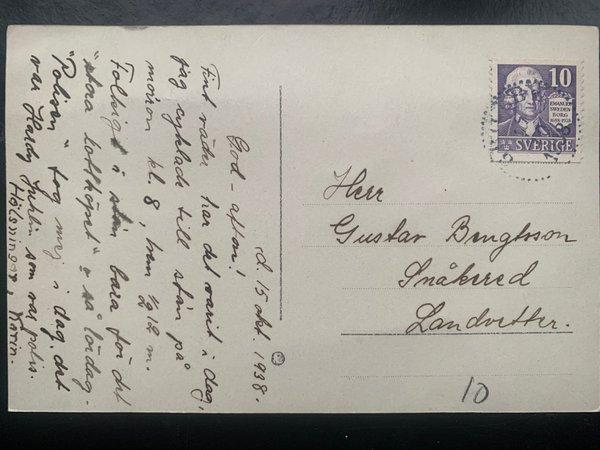 d. 15 okt. 1938.
God-afton!
Fint väder har det varit i dag,
jag cyklade till stan på
morron kl. 8, hem 1/2 12 m.
Folksigt i stan bara för det
"stora kalthöpet" o så lördag.
"Polisen" tog mej i dag, det
var Hardy som var polis.
Hälsningar, Karin.
10
EMANUEL
SWEDEN
BORG
1688-1938
SVERIGE
Herr
Gustav Bengtsson
Snåkered
Landvetter.
10